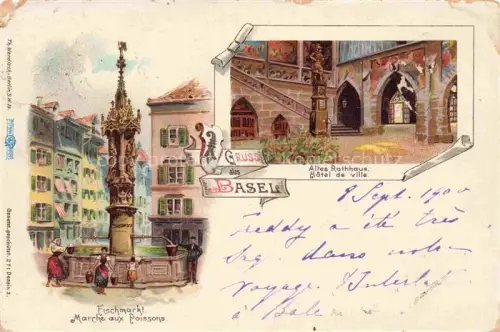 GRUSS
aus
BASEL
Altes Rathhaus.
Hôtel de ville.
Fischmarkt.
Marché aux Poissons.
9 Sept. 1900
Freddy a été très
sage dans notre
voyage d'Interlaken
à Bâle